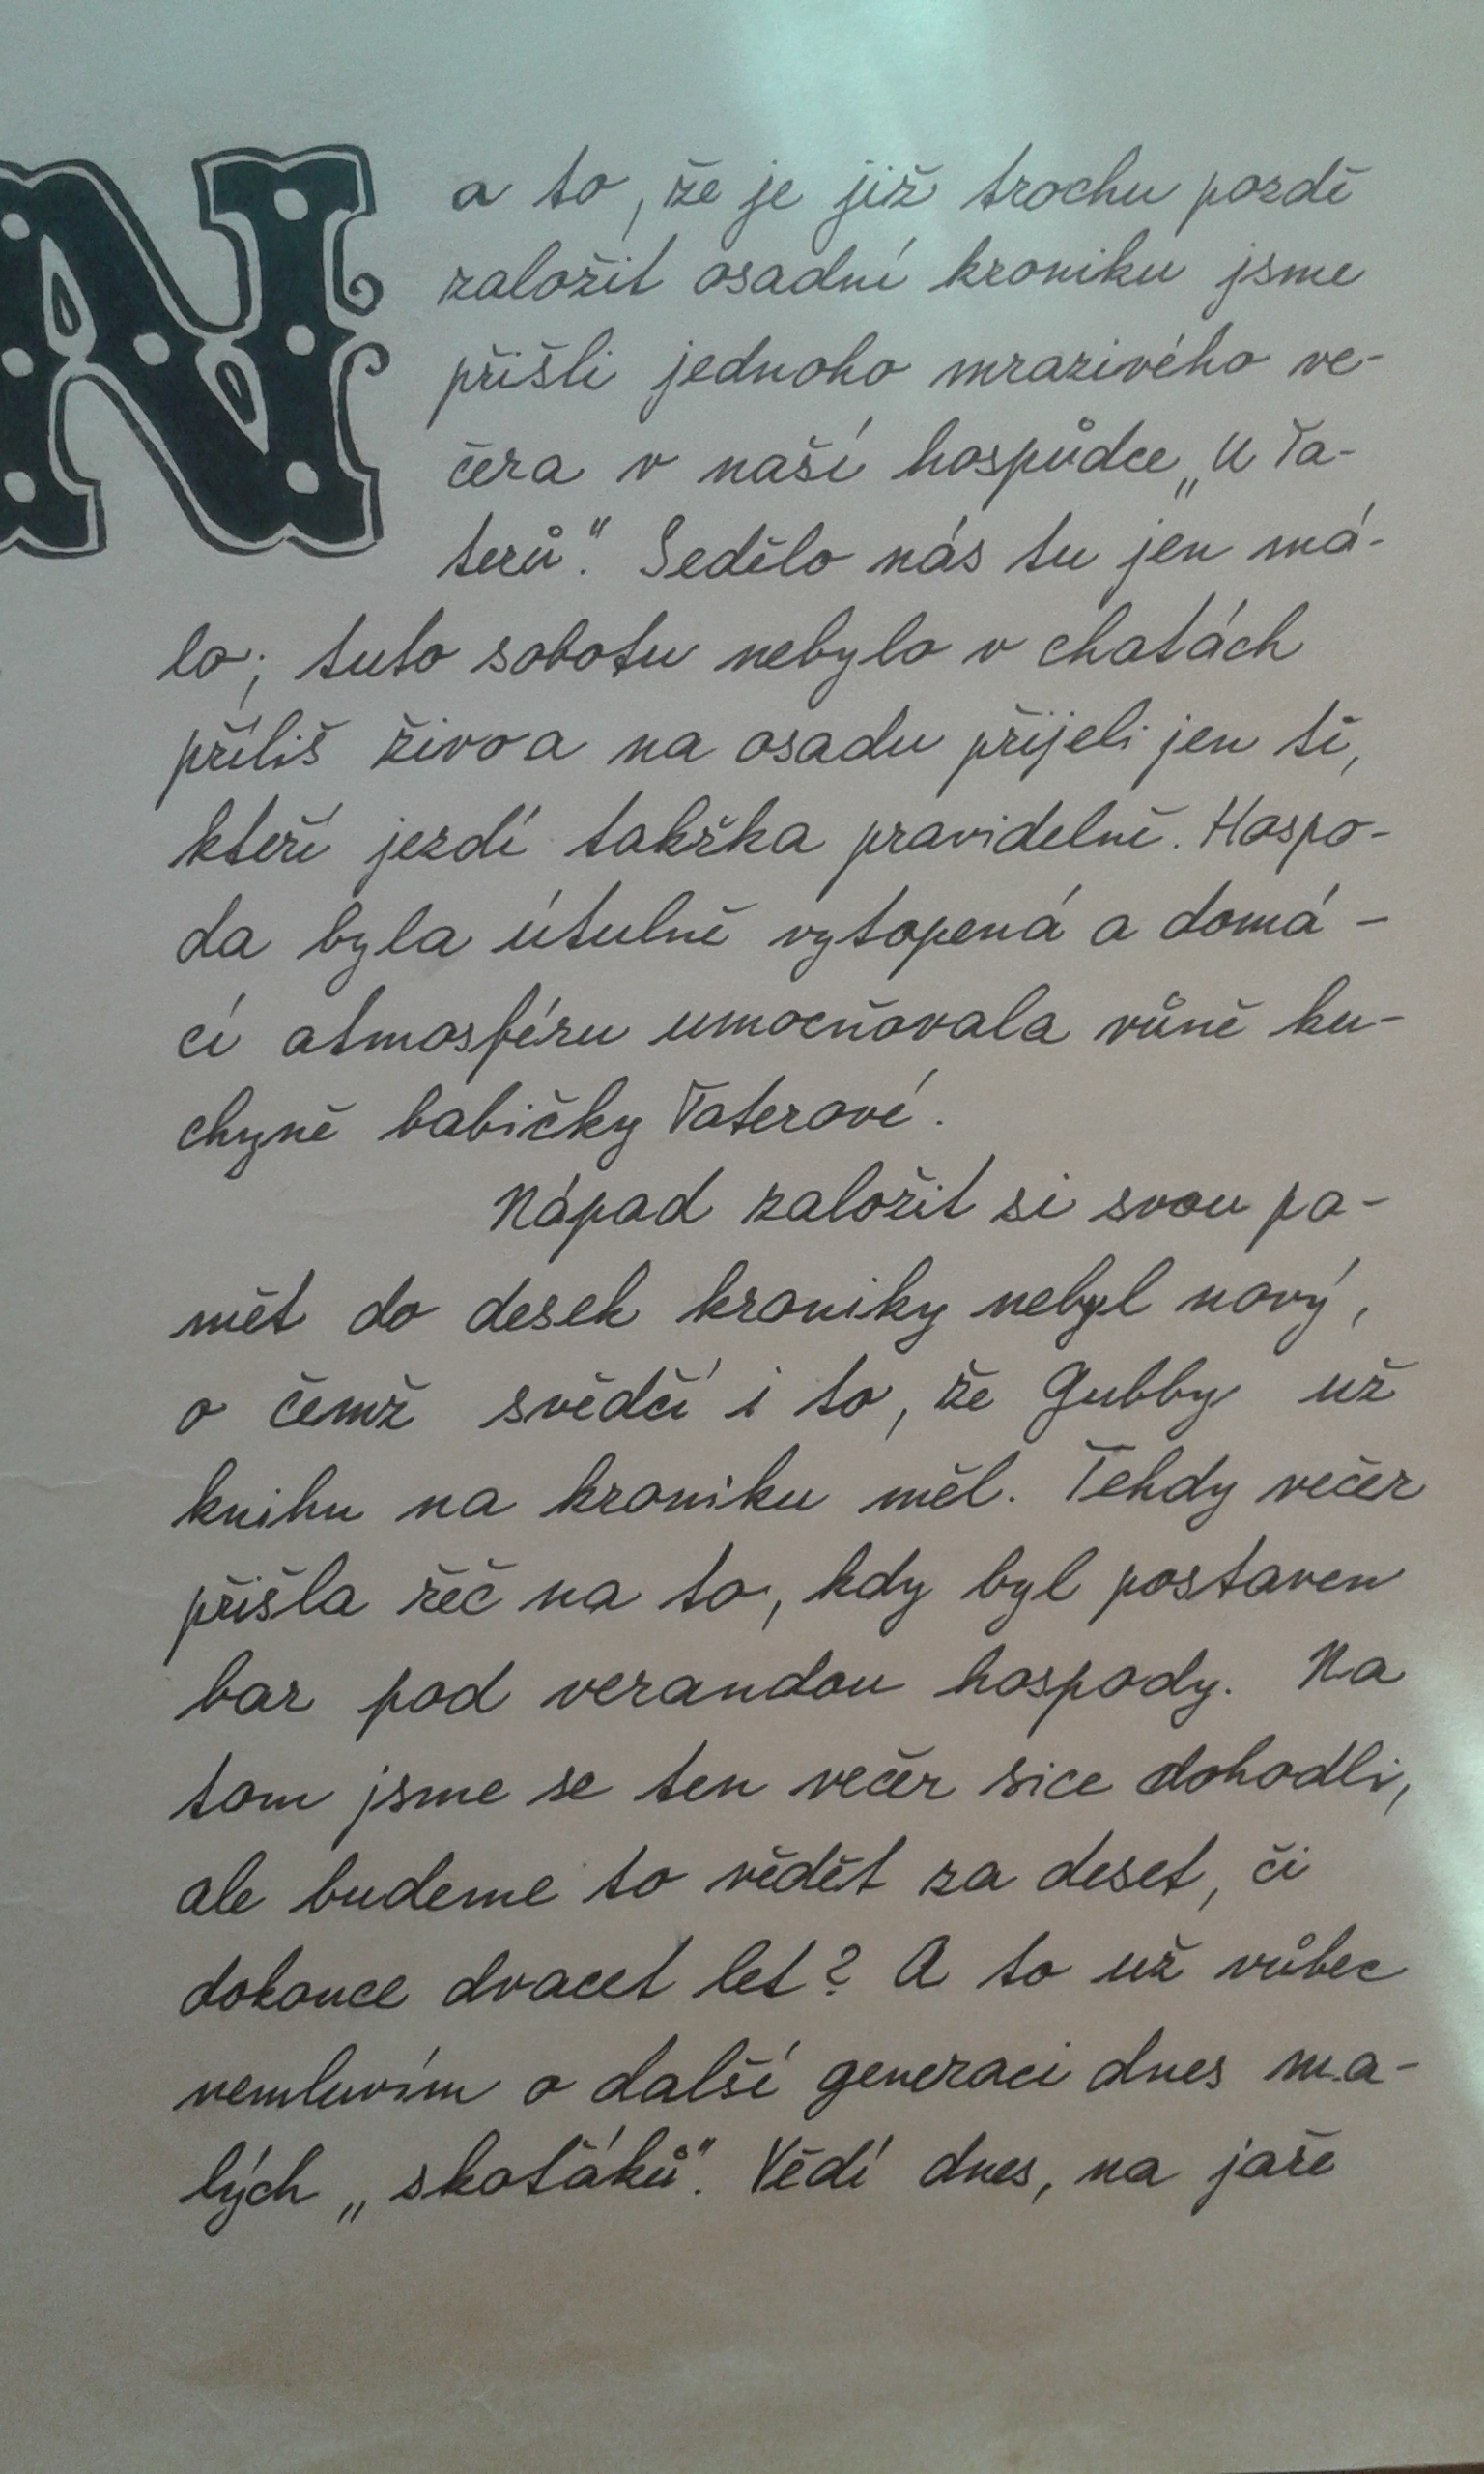 Na to, že je již trochu pozdě
založit osadní kroniku jsme
přišli jednoho mrazivého ve-
čera v naší hospůdce „U Ta-
terů". Sedělo nás tu jen má-
lo; tuto sobotu nebylo v chatách
příliš živo a na osadu přijeli jen ti,
kteří jezdí takřka pravidelně. Hospo-
da byla útulně vytopená a domá-
cí atmosféru umocňovala vůně ku-
chyně babičky Taterové.
Nápad založit si svou pa-
mět do desek kroniky nebyl nový,
o čemž svědčí i to, že Gubby už
knihu na kroniku měl. Tehdy večer
přišla řeč na to, kdy byl postaven
bar pod verandou hospody. Na
tom jsme se ten večer sice dohodli,
ale budeme to vědět za deset, či
dokonce dvacet let? A to už vůbec
nemluvím o další generaci dnes ma-
lých „skoťáků". Vědí dnes, na jaře